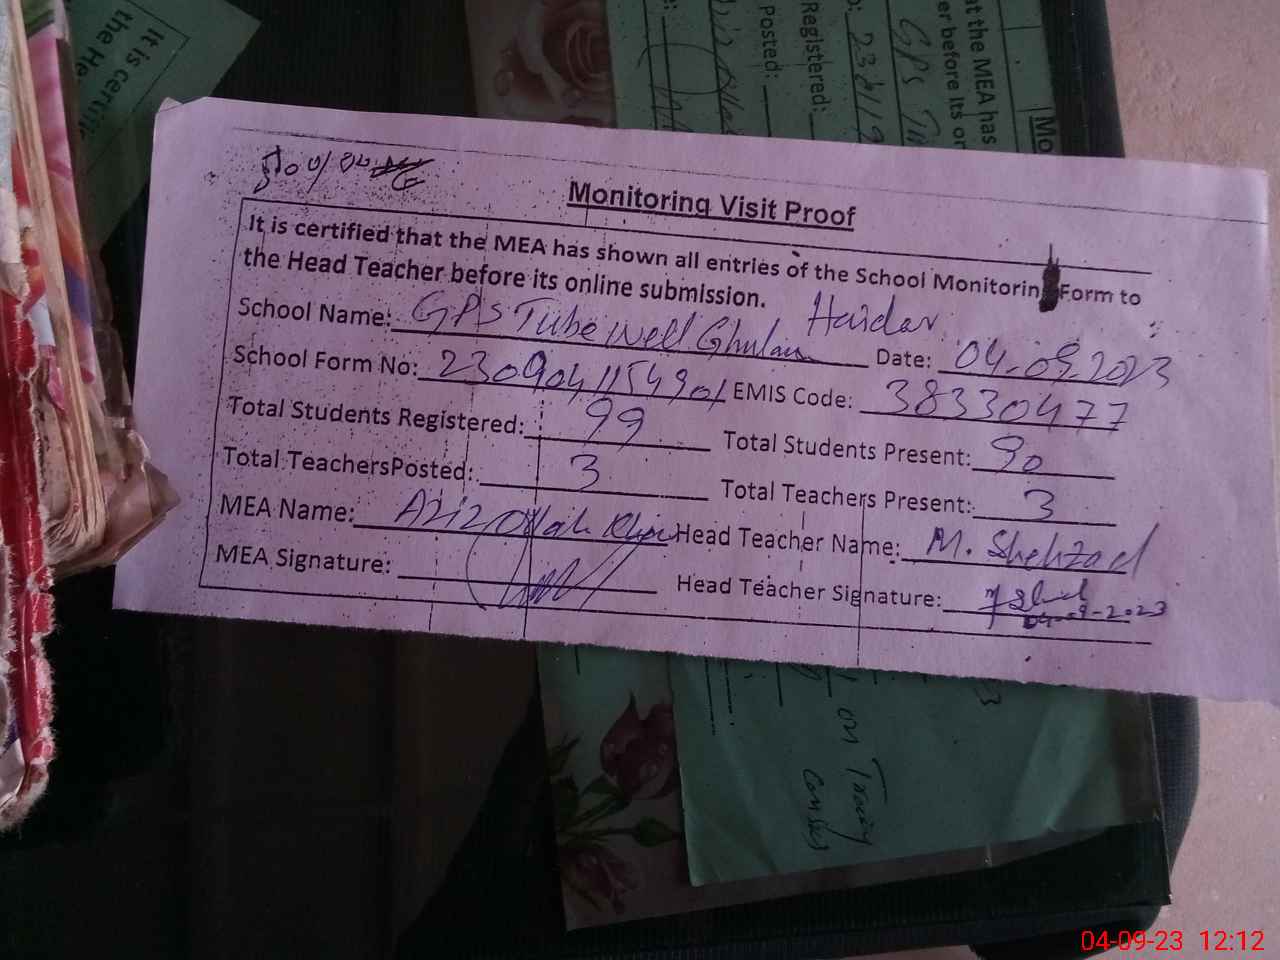 Monitoring Visit Proof
It is certified that the MEA has shown all entries of the School Monitorin Form to
the Head Teacher before its online submission.
School Name: GPS Tube Well Ghulam Haidar Date: 04-09-2023
School Form No: 2309041154901 EMIS Code: 38330477
Total Students Registered: 99 Total Students Present: 90
Total TeachersPosted: 3 Total Teachers Present: 3
MEA Name: Azizollah Khan Head Teacher Name: M. Shehzad
MEA Signature: Head Teacher Signature:
04-09-2023
It is certifi
the He
at the MEA has
er before its on
GPS Tu
Registered:
Posted:
Mo
on Tracing
04-09-23 12:12